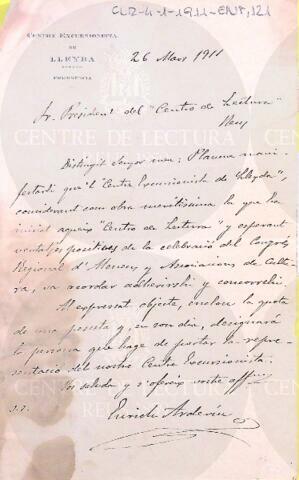 CLR-4-1-1911-ENT,121
CENTRE EXCURSIONISTA
DE
LLEYDA
PRESIDENCIA
26 Mars 1911
Sr. President del "Centro de Lectura"
Reus
Distingit Senyor meu: Plaume mani-
festarli que 'l "Centre Excursionista de Lleyda",
considerant com obra meritissima la que ha
iniciat aqueix "Centro de Lectura" y esperant
ventatjes positives de la celebració del Congrés
Regional d'Ateneus y Associacions de Cultu-
ra, va acordar adherirshi y concorrehi.
Al expressat objecte, incloch la quota
de una pesseta y, en son dia, designará
la persona que hage de portar la repre-
sentació del nostre Centre Excursionista.
Lo saluda y s'ofereix vostre affm.
s.s.
Enrich Ardeviu
CENTRE DE LECTURA
REUS